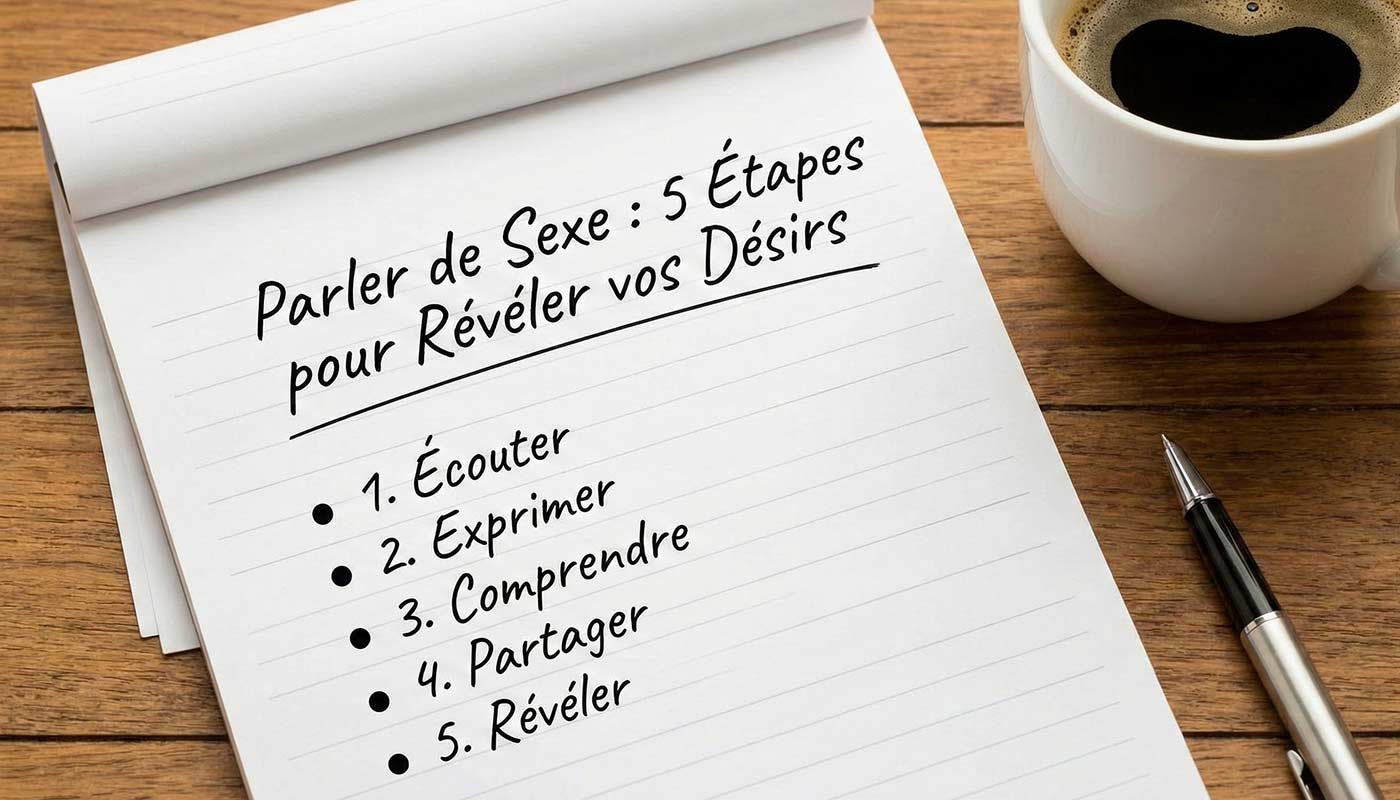 Parler de Sexe : 5 Étapes
pour Révéler vos Désirs
• 1. Écouter
• 2. Exprimer
• 3. Comprendre
• 4. Partager
• 5. Révéler